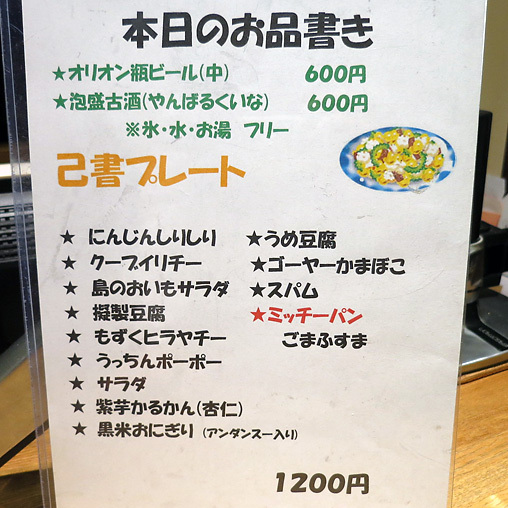 本日のお品書き
★オリオン瓶ビール(中) 600円
★泡盛古酒(やんばるくいな) 600円
※氷・水・お湯 フリー
己書プレート
★ にんじんしりしり
★ クーブイリチー
★ 島のおいもサラダ
★ 擬製豆腐
★ もずくヒラヤチー
★ うっちんポーポー
★ サラダ
★ 紫芋かるかん(杏仁)
★ 黒米おにぎり (アンダンスー入り)
★うめ豆腐
★ゴーヤーかまぼこ
★スパム
★ミッチーパン
ごまふすま
1200円